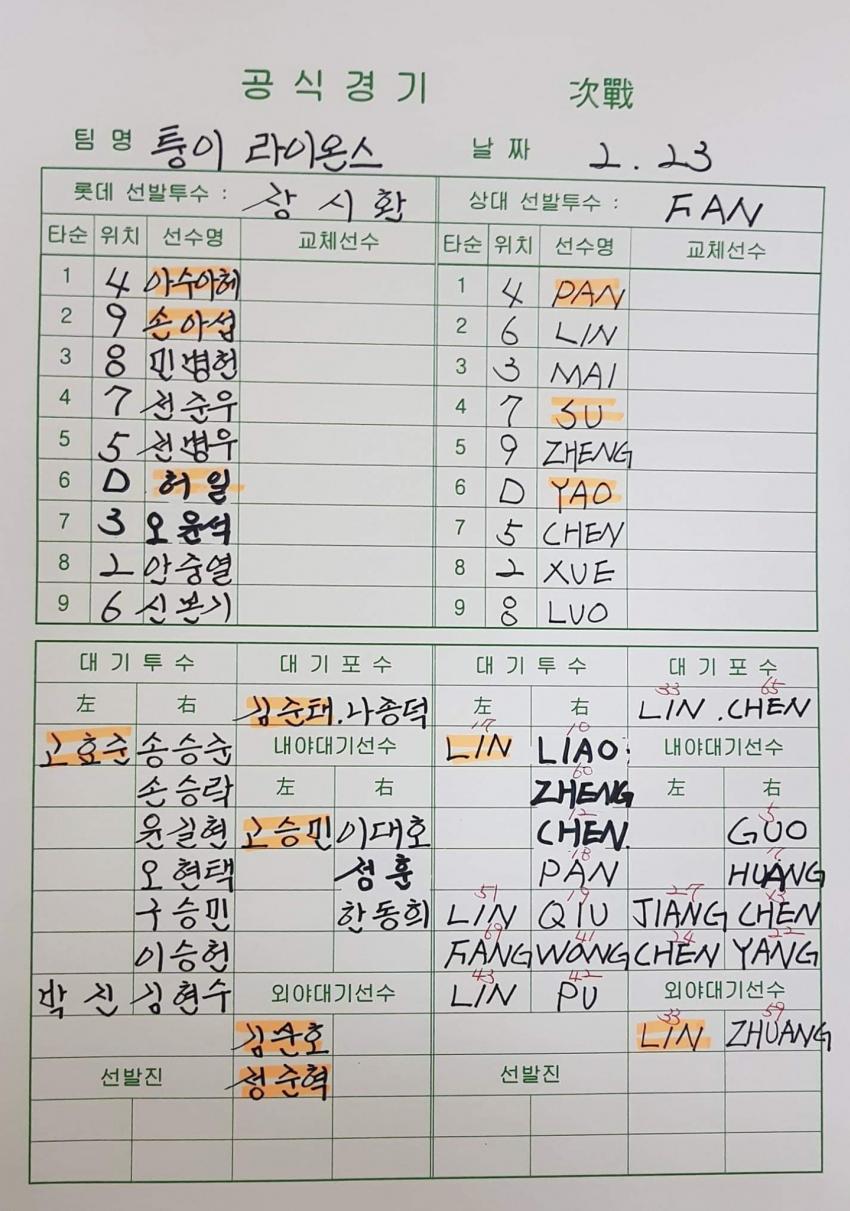 공식경기 次戰
팀명 퉁이 라이온스 날짜 2.23
롯데 선발투수 : 장시환 상대 선발투수 : FAN
타순 위치 선수명 교체선수 타순 위치 선수명 교체선수
1 4 아수아헤 1 4 PAN
2 9 손아섭 2 6 LIN
3 8 민병헌 3 3 MAI
4 7 전준우 4 7 SU
5 5 전병우 5 9 ZHENG
6 D 허일 6 D YAO
7 3 오윤석 7 5 CHEN
8 2 안중열 8 2 XUE
9 6 신본기 9 8 LUO
대기투수 대기포수 대기투수 대기포수
左 右 김준태.나종덕 左 右 33 LIN . 65 CHEN
고효준 송승준 내야대기선수 17 LIN 10 LIAO 내야대기선수
손승락 左 右 60 ZHENG 左 右
윤길현 고승민 이대호 12 CHEN 5 GUO
오현택 정훈 18 PAN HUANG
구승민 한동희 51 LIN 19 QIU 27 JIANG 13 CHEN
이승헌 69 FANG 41 WONG 24 CHEN 22 YANG
박진 김현수 외야대기선수 43 LIN 42 PU 외야대기선수
김준호 33 LIN 59 ZHUANG
선발진 정준혁 선발진